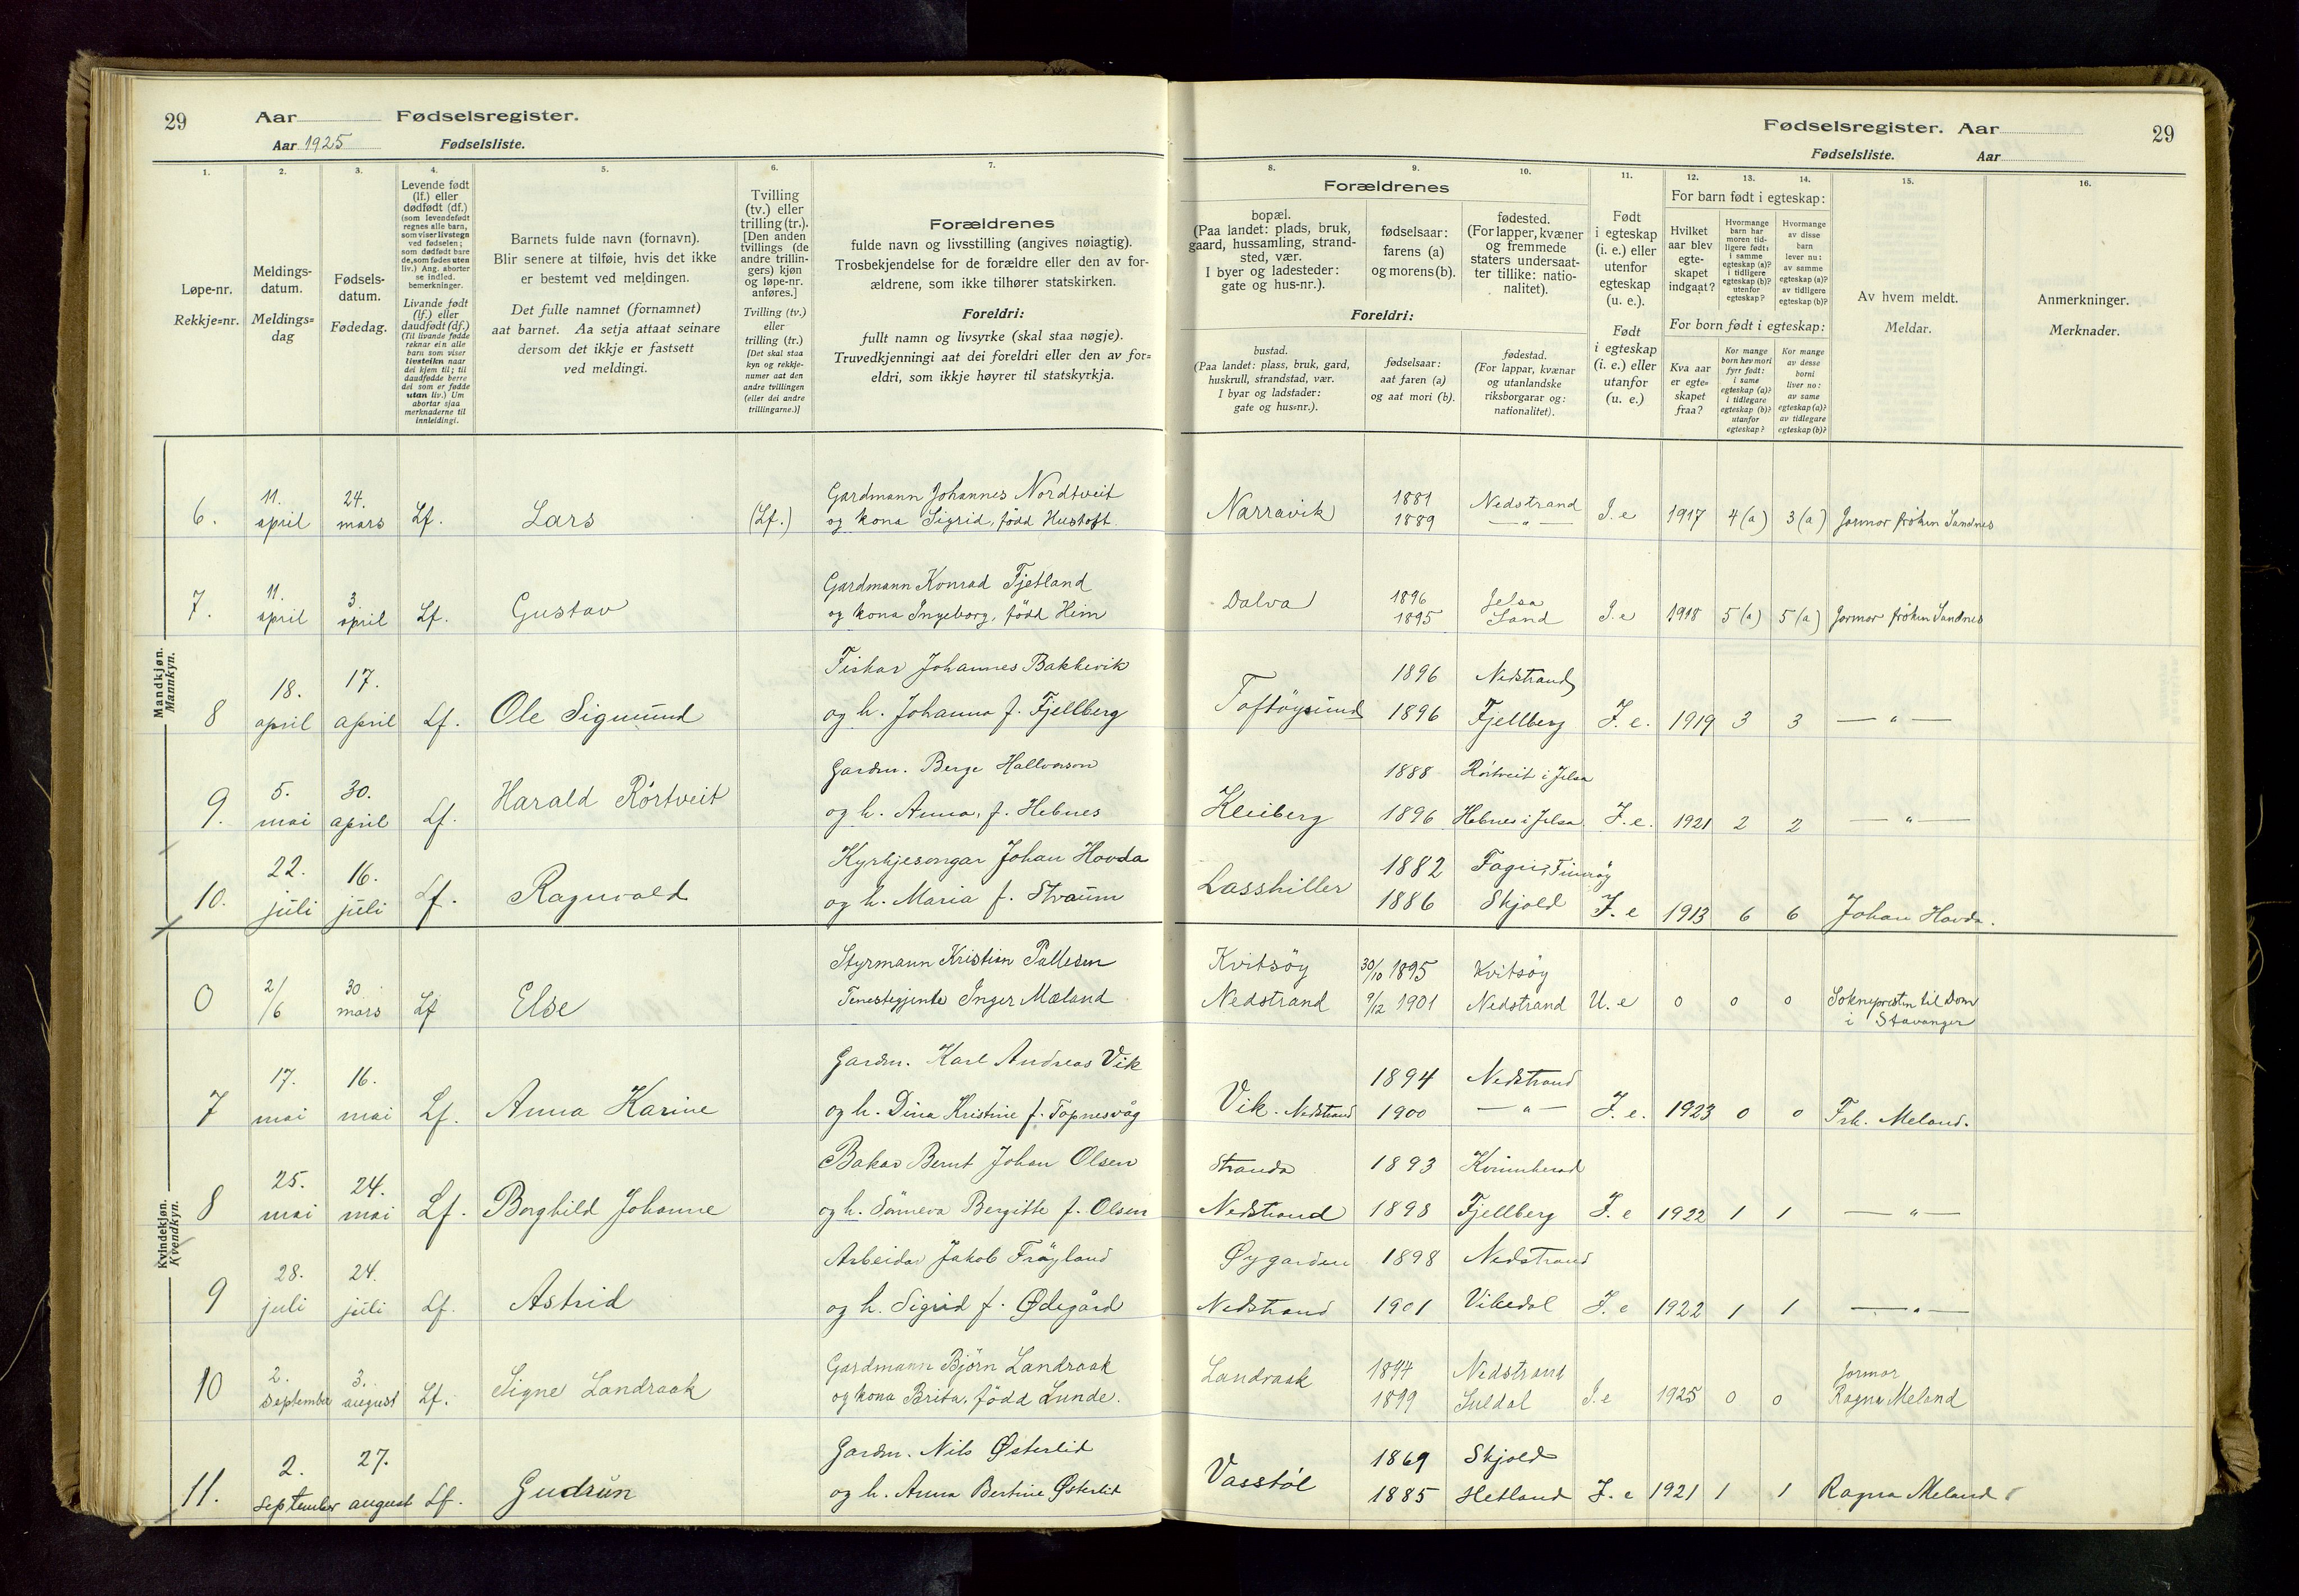 29 Aar Fødselsregister.
Aar 1925 Fødselsliste.
Fødselsregister. Aar 29
Fødselsliste. Aar
1. 2. 3. 4. 5. 6. 7. 8. 9. 10. 11. 12. 13. 14. 15. 16.
Løpe-nr.
Rekkje=nr.
Meldings-
datum.
Meldings=
dag
Fødsels-
datum.
Fødedag.
Levende født
(lf.) eller
dødfødt (df.)
(som levendefødt
regnes alle barn,
som viser livstegn
ved fødselen;
som dødfødt bare
de, som fødes uten
liv.) Ang. aborter
se indled.
bemerkninger.
Livande født
(lf.) eller
daudfødt (df.)
(Til livande fødde
reknar ein alle
barn som viser
livsteikn naar
dei kjem til; til
daudfødde berre
dei som er fødde
utan liv.) Um
abortar sjaa
merknaderne til
innleidingi.
Barnets fulde navn (fornavn).
Blir senere at tilføie, hvis det ikke
er bestemt ved meldingen.
Det fulle namnet (fornamnet)
aat barnet. Aa setja attaat seinare
dersom det ikkje er fastsett
ved meldingi.
Tvilling
(tv.) eller
trilling (tr.).
[Den anden
tvillings (de
andre trillin-
gers) kjøn
og løpe-nr.
anføres.]
Tvilling (tv.)
eller
trilling (tr.)
[Det skal staa
kyn og rekkje-
numer aat den
andre tvillingen
(eller dei andre
trillingarne.)]
Forældrenes
fulde navn og livsstilling (angives nøiagtig).
Trosbekjendelse for de forældre eller den av for-
ældrene, som ikke tilhører statskirken.
Foreldri:
fullt namn og livsyrke (skal staa nøgje).
Truvedkjenningi aat dei foreldri eller den av for=
eldri, som ikkje høyrer til statskyrkja.
Forældrenes
bopæl.
(Paa landet: plads, bruk,
gaard, hussamling, strand-
sted, vær.
I byer og ladesteder:
gate og hus-nr.).
fødselsaar:
farens (a)
og morens (b).
fødested.
(For lapper, kvæner
og fremmede
staters undersaat-
ter tillike: natio-
nalitet).
Foreldri:
bustad.
(Paa landet: plass, bruk, gard,
huskrull, strandstad, vær.
I byar og ladstader:
gate og hus=nr.).
fødselsaar:
aat faren (a)
og aat mori (b).
fødestad.
(For lappar, kvænar
og utanlandske
riksborgarar og:
nationalitet).
Født
i egteskap
(i. e.) eller
utenfor
egteskap
(u. e.).
Født
i egteskap
(i. e.) eller
utanfor
(u. e.)
For barn født i egteskap:
Hvilket
aar blev
egte-
skapet
indgaat?
Hvormange
barn har
moren tid-
ligere født:
i samme
egteskap (a)?
i tidligere
egteskap (b)?
utenfor
egteskap?
Hvormange
av disse
barn
lever nu:
av samme
egteskap (a)?
av tidligere
egteskap (b)?
For born født i egteskap:
Kva aar
er egte=
skapet
fraa?
Kor mange
born hev mori
fyrr født:
i same
egteskap (a)?
i tidlegare
egteskap (b)?
utanfor
egteskap?
Kor mange
av desse
borni
liver no:
av same
egteskap (a)?
av tidlegare
egteskap (b)?
Av hvem meldt.
Meldar.
Anmerkninger.
Merknader.
Mandkjøn.
Mannkyn.
6. 11. april 24. mars Lf. Lars (Lf.) Gardmann Johannes Nordtveit
og kona Sigrid, född Hustoft. Narravik 1881 Nedstrand
1889 —"— I. e 1917 4 (a) 3 (a) Jormor fröken Sandnes
7. 11. april 3 april Lf. Gustav Gardmann Konrad Tjetland
og kona Ingeborg, född Heim Dalva 1896 Jelsa
1895 Sand I. e 1918 5 (a) 5 (a) Jormor fröken Sandnes
8 18. april 17. april Lf. Ole Sigmund Fiskar Johannes Bakkevik
og h. Johanna f. Fjellberg Toftöysund 1896 Nedstrand
1896 Fjellberg I. e. 1919 3 3 —"—
9. 5. mai 30. april Lf. Harald Rörtveit Gardm. Berge Hallvorson
og h. Anna, f. Hebnes Kleiberg 1888 Rörtveit i Jelsa
1896 Hebnes i Jelsa I. e. 1921 2 2 —"—
10. 22. juli 16. juli Lf. Ragnvald Kyrkjesongar Johan Hovda
og h. Maria f. Straum Lasshiller 1882
1886 Skjold I. e 1913 6 6 Johan Hovda.
Kvindekjøn.
Kvendkyn.
0 2/6 30 mars Lf Else Styrmann Kristian Pallesen
Tenestegjenta Inger Mæland Kvitsöy 30/10 1895 Kvitsöy
Nedstrand 9/12 1901 Nedstrand U. e 0 0 0 Sokneprestin til Dom
i Stavanger
7 17. mai 16. mai Lf. Anna Karine Gardm. Karl Andreas Vik
og h. Dina Kristine f. Topnesvåg Vik. Nedstrand 1894 Nedstrand
1900 —"— I. e. 1923 0 0 Frk. Meland.
8 25. mai 24. mai Lf. Borghild Johanne Bakar Bernt Johan Olsen
og h. Sönneva Bergitte f. Olsen Stranda 1893 Kvinnherad
Nedstrand 1898 Fjellberg I. e 1922 1 1 —"—
9 28. juli 24. juli Lf. Astrid Arbeidar Jakob Fröyland
og h. Sigrid f. Ødegård Øygarden 1898 Nedstrand
Nedstrand 1901 Vikedal I. e 1922 1 1 —"—
10 2. September 3. august Lf. Signe Landraak Gardmann Björn Landraak
og kona Brita, född Lunde. Landraak 1894 Nedstrand
1899 Suldal I. e 1925 0 0 Jormor
Ragna Meland
11. 2. September 27. august Lf. Gudrun Gardm. Nils Østerlid
og h. Anna Bertine Østerlid Vasstöl 1869 Skjold
1885 Hetland I. e 1921 1 1 Ragna Meland